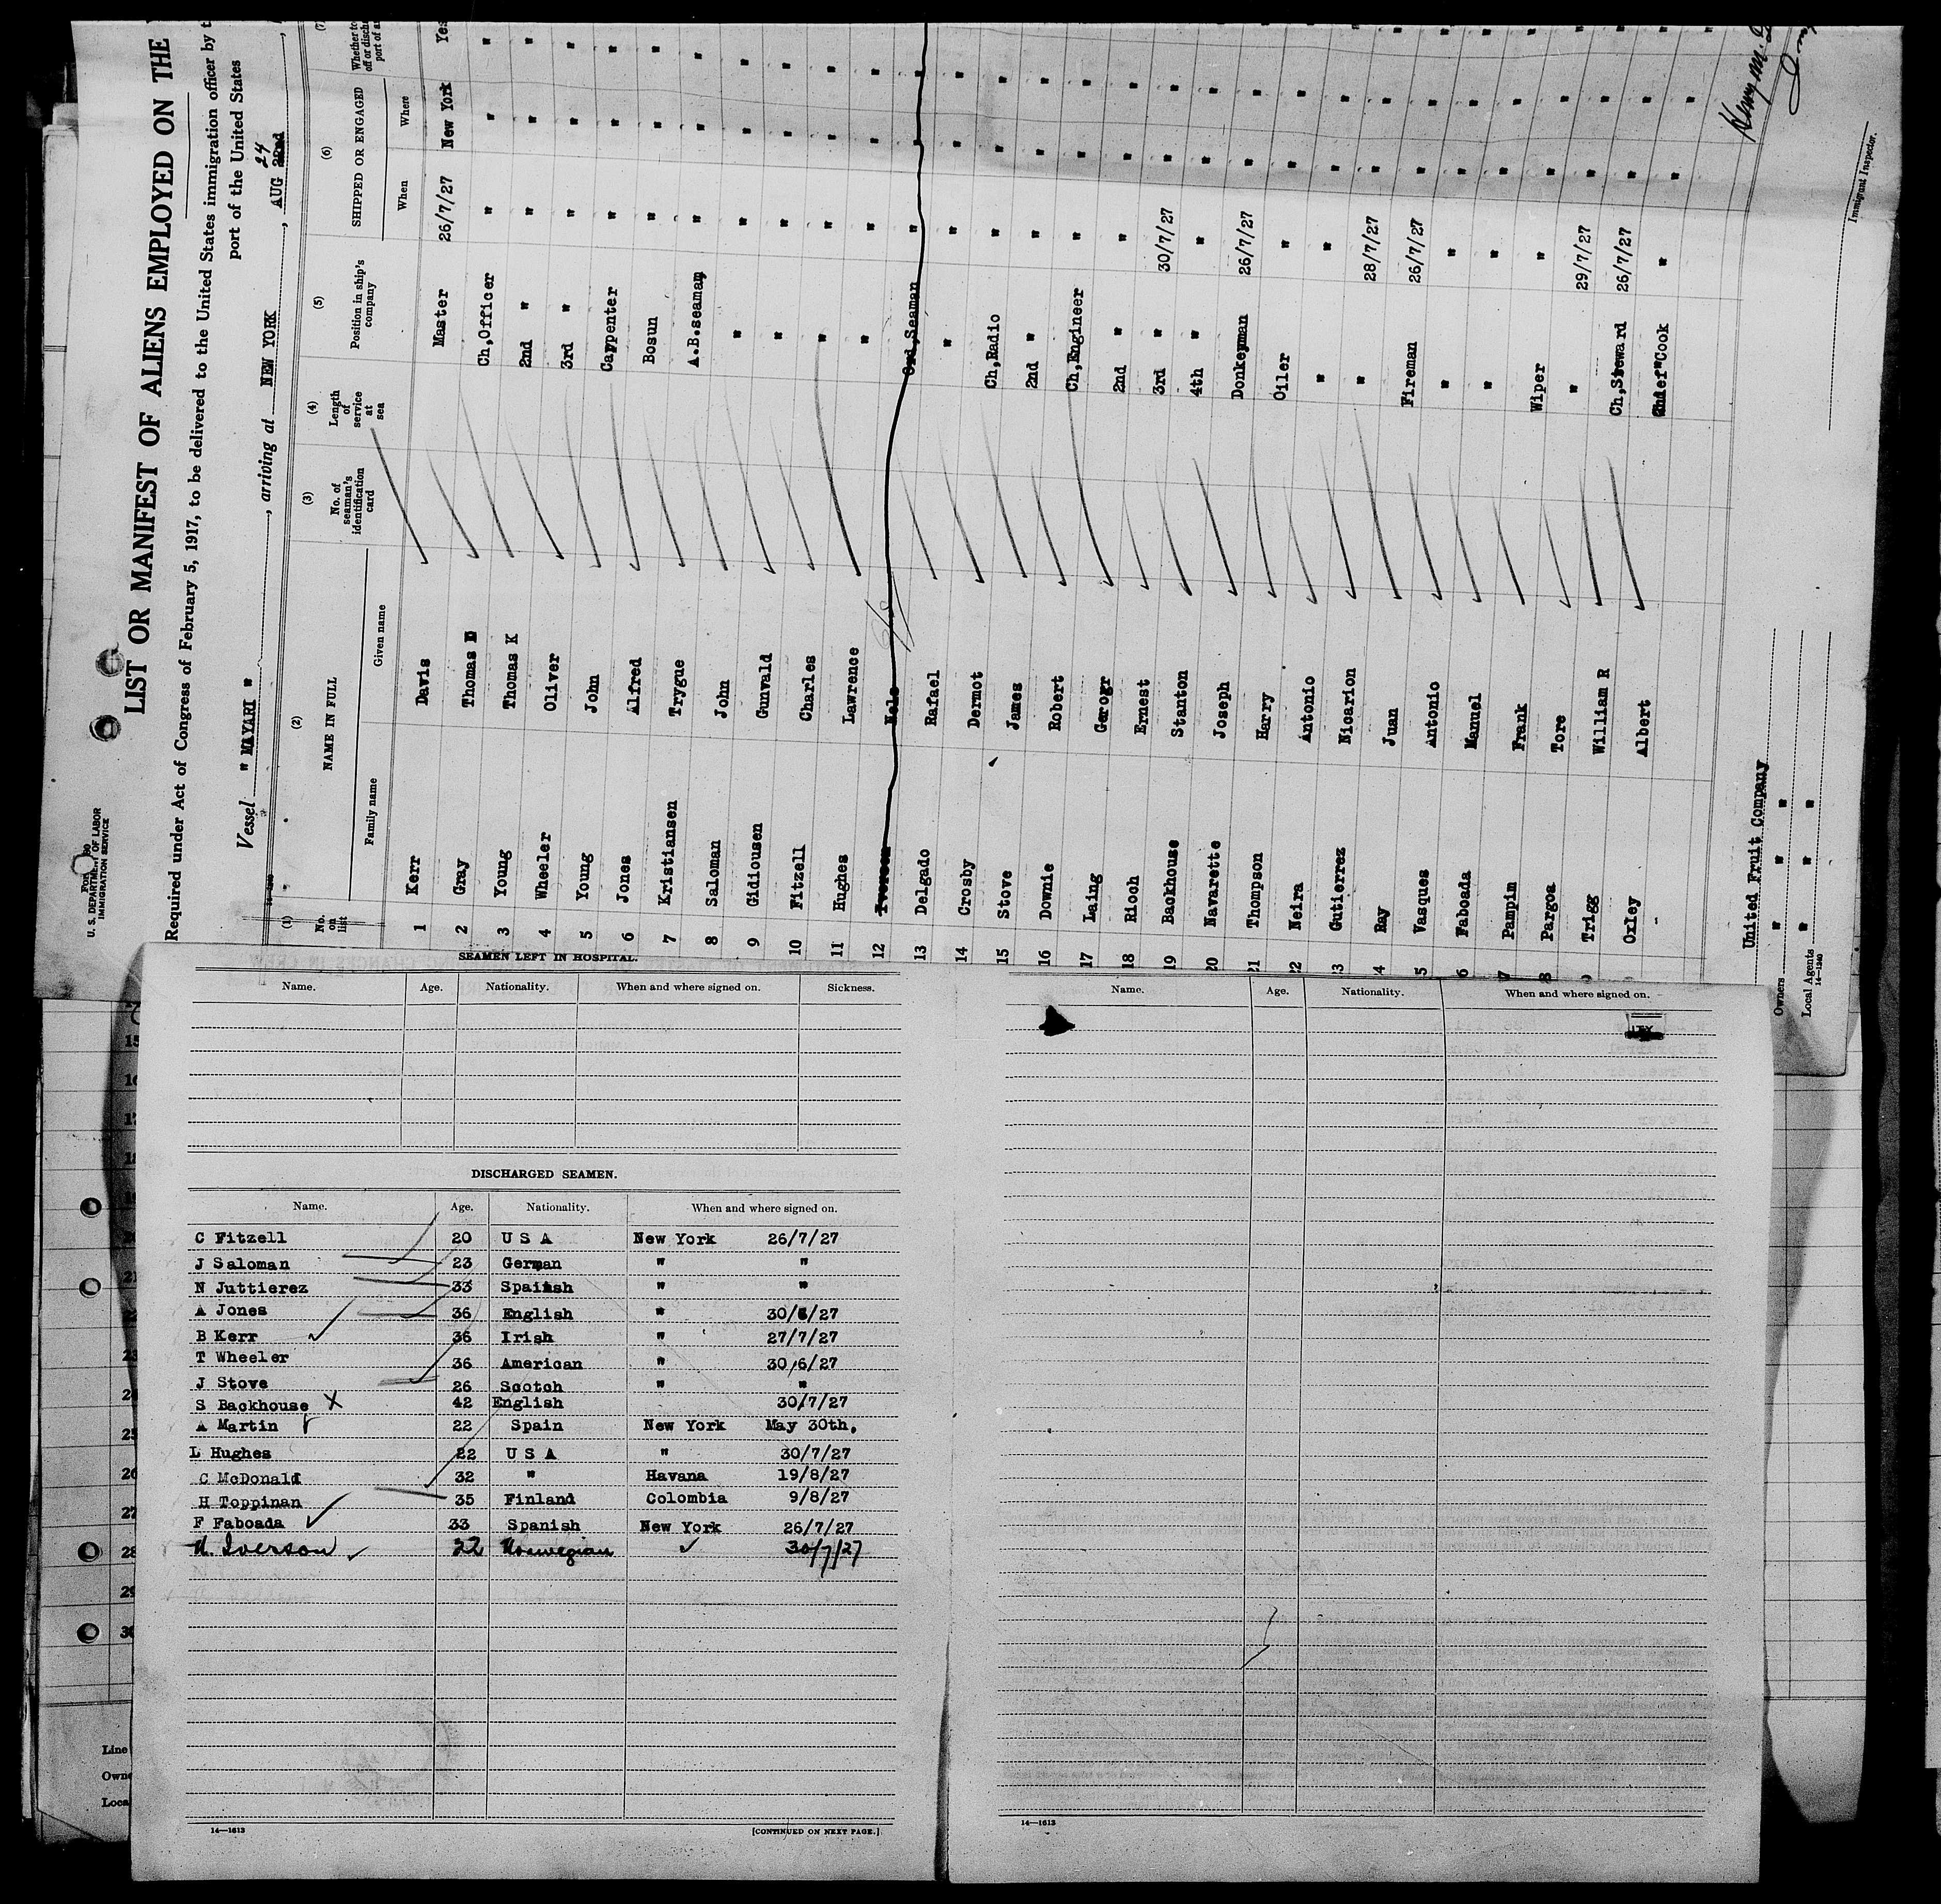 Form 680
U. S. DEPARTMENT OF LABOR
IMMIGRATION SERVICE
LIST OR MANIFEST OF ALIENS EMPLOYED ON THE
Required under Act of Congress of February 5, 1917, to be delivered to the United States immigration officer by t
port of the United States
Vessel " MAYARI ", arriving at NEW YORK, AUG 24 22nd,
(1) (2) (3) (4) (5) (6) (7)
No. on list NAME IN FULL No. of seaman's identification card Length of service at sea Position in ship's company SHIPPED OR ENGAGED Whether to off or disch port of a
Family name Given name When Where
1 Kerr Davis Master 26/7/27 New York Yes
2 Gray Thomas D Ch,Officer " " "
3 Young Thomas K 2nd " " " "
4 Wheeler Oliver 3rd " " " "
5 Young John Carpenter " " "
6 Jones Alfred Bosun " " "
7 Kristiansen Trygue A.B.seaman " " "
8 Saloman John " " " "
9 Gidiousen Gunvald " " " "
10 Fitzell Charles " " " "
11 Hughes Lawrence " " " "
12 Iverson Nels Ord,Seaman " " "
13 Delgado Rafael " " " "
14 Crosby Dermot Ch,Radio " " "
15 Stove James 2nd " " " "
16 Downie Robert Ch,Engineer " " "
17 Laing Gerogr 2nd " " " "
18 Rioch Ernest 3rd " 30/7/27 " "
19 Backhouse Stanton 4th " " " "
20 Navarette Joseph Donkeyman 26/7/27 " "
21 Thompson Harry Oiler " " "
22 Neira Antonio " " " "
23 Gutierrez Nicarion " 28/7/27 " "
4 Ray Juan Fireman 26/7/27 " "
5 Vasques Antonio " " " "
6 Faboada Manuel " " " "
7 Pampim Frank Wiper " " "
8 Pargoa Tore " 29/7/27 " "
9 Trigg William R Ch,Steward 26/7/27 " "
Oxley Albert Chief"Cook " " "
United Fruit Company
Owners " " "
Local Agents " " "
14—1240
Immigrant Inspector.
SEAMEN LEFT IN HOSPITAL.
Name. Age. Nationality. When and where signed on. Sickness.
DISCHARGED SEAMEN.
Name. Age. Nationality. When and where signed on.
C Fitzell 20 U S A New York 26/7/27
J Saloman 23 German " "
N Juttierez 33 Spainsh " "
A Jones 36 English " 30/6/27
B Kerr 36 Irish " 27/7/27
T Wheeler 36 American " 30/6/27
J Stove 26 Scotch " "
S Backhouse X 42 English 30/7/27
A Martin 22 Spain New York May 30th.
L Hughes 22 U S A " 30/7/27
C McDonald 32 " Havana 19/8/27
H Toppinan 35 Finland Colombia 9/8/27
F Faboada 33 Spanish New York 26/7/27
N. Iverson 22 Norwegian 30/7/27
14—1613
[CONTINUED ON NEXT PAGE.]
Name. Age. Nationality. When and where signed on.
14—1613
15
16
17
18
25
26
27
28
29
30
Line
Owne
Loca